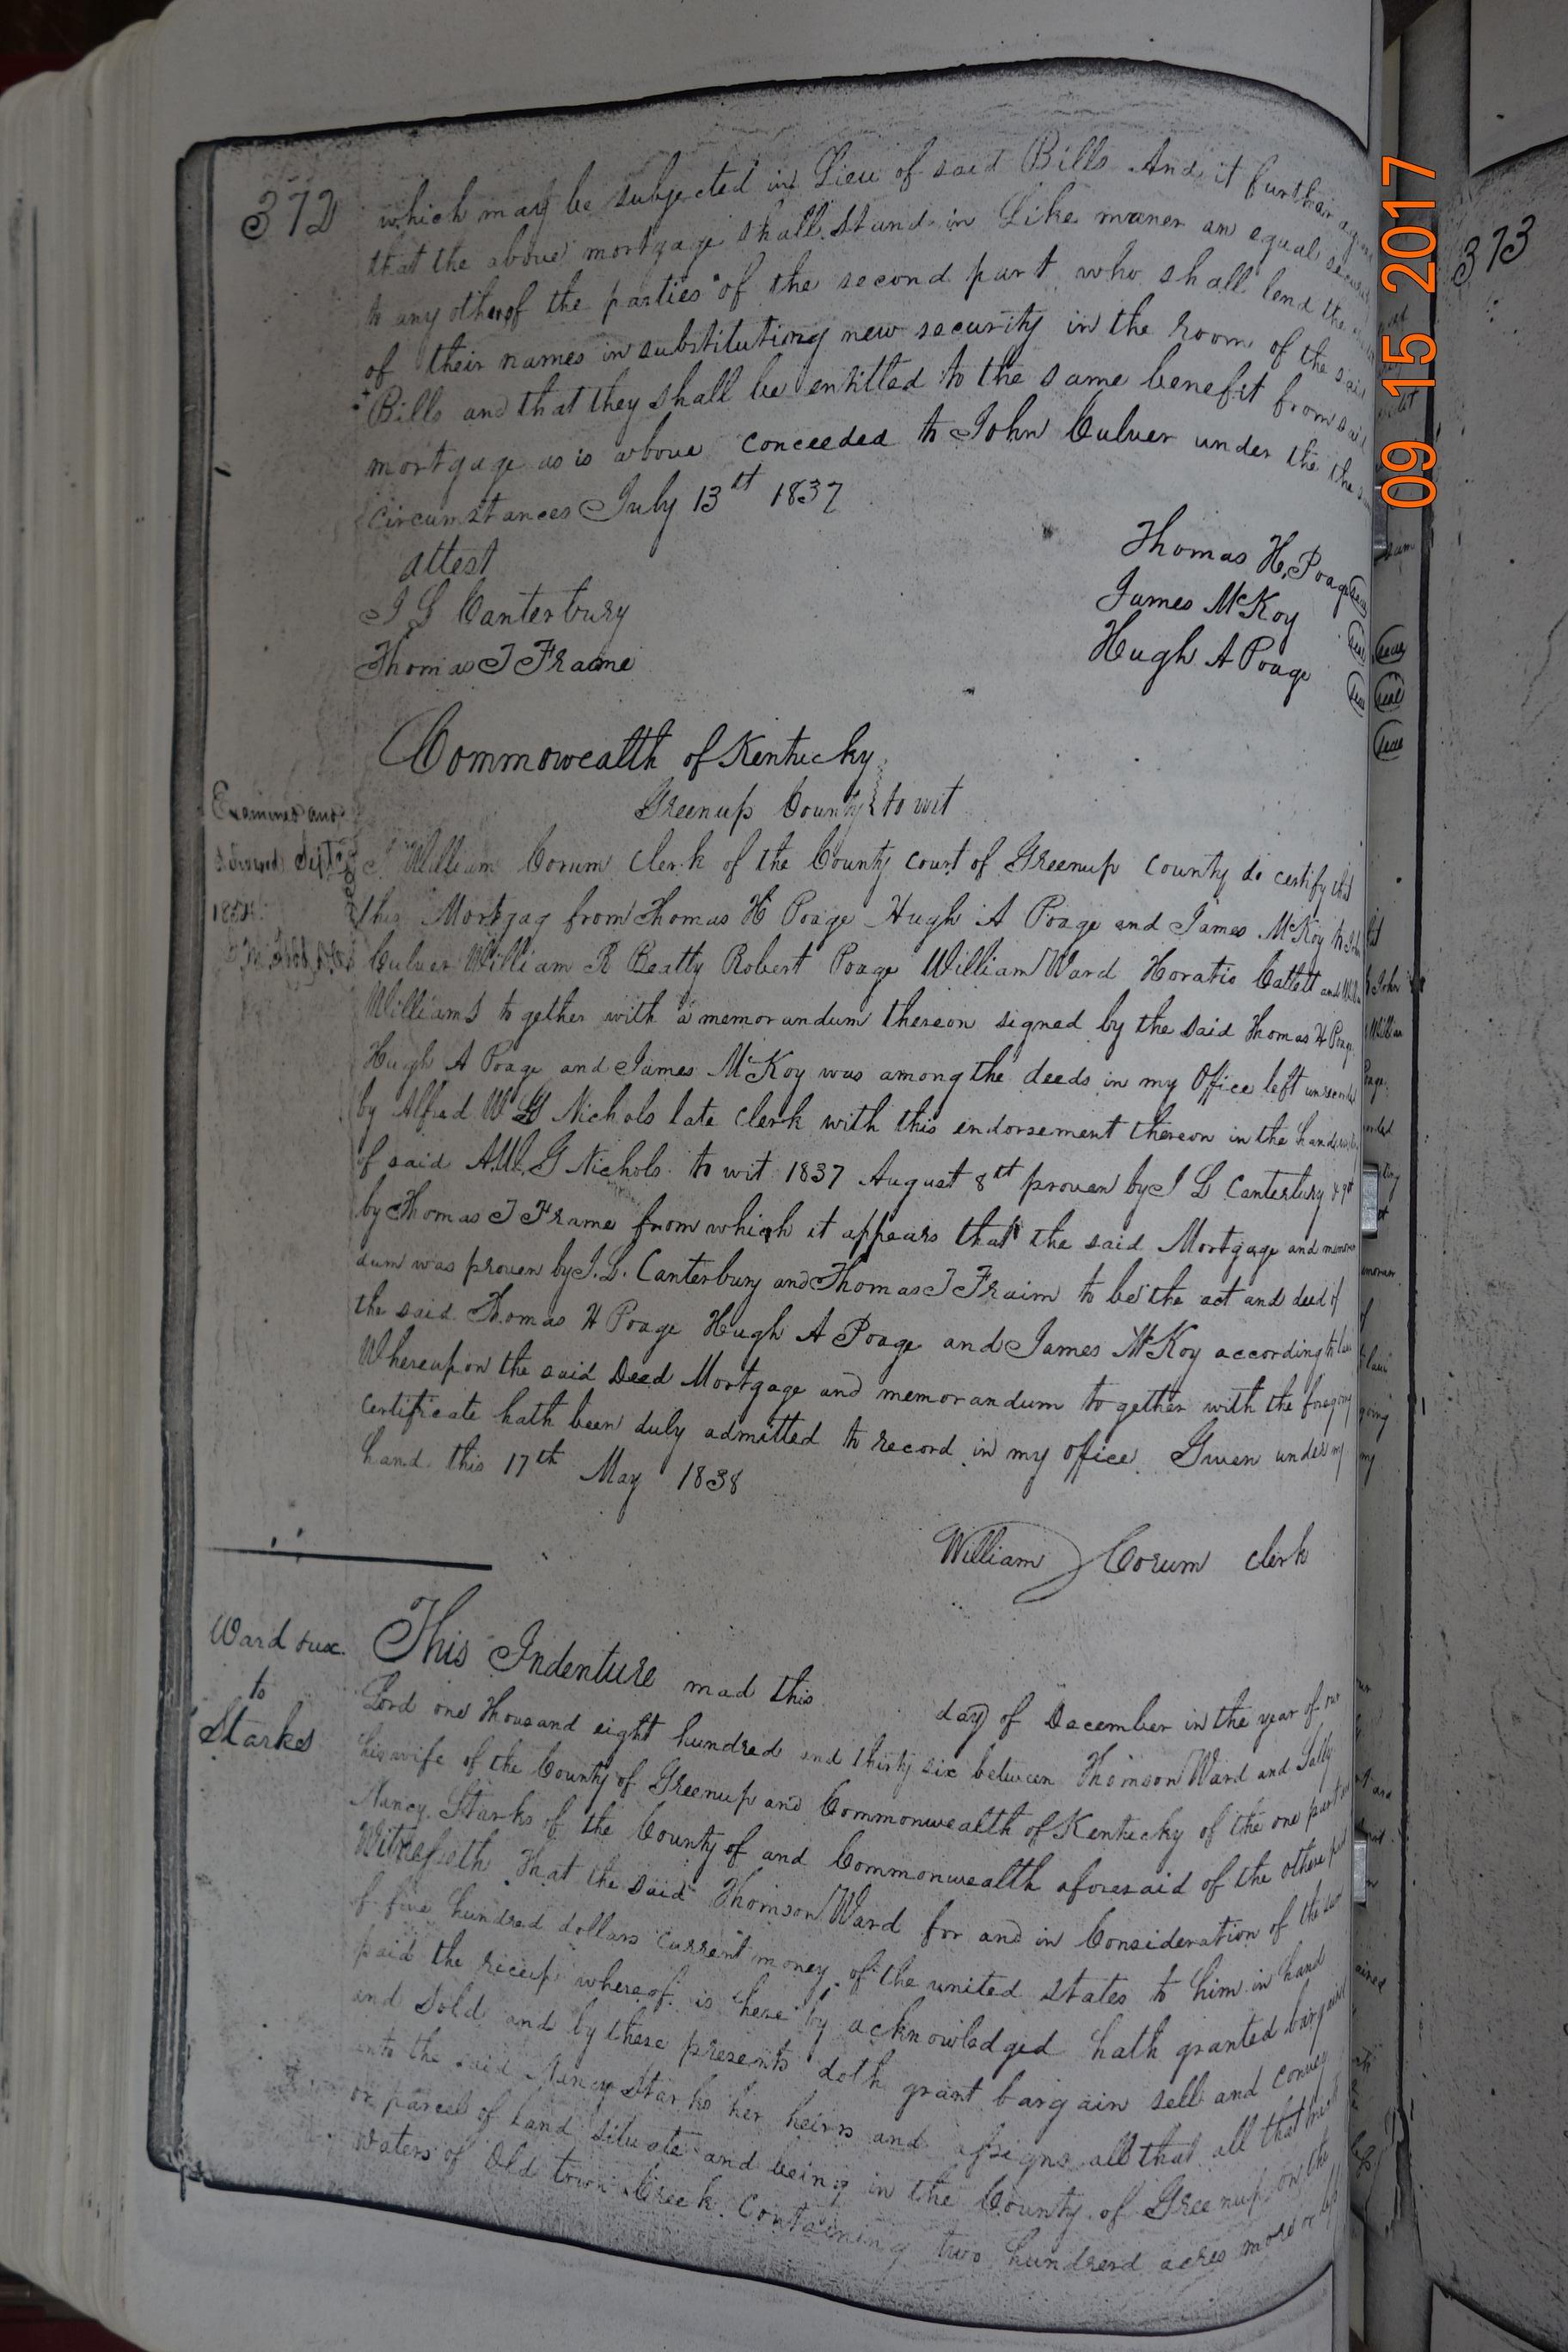 372
which may be subjected in Lieu of said Bills And it further agre
that the above mortgage shall stand in Like maner an equal secur
to any other of the parties of the second part who shall lend the
of their names in substituting new security in the room of the said
Bills and that they shall be entitled to the same benefit from said
mortgage as is above conceeded to John Culver under the the s
Circumstances July 13th 1837
attest
J L Canterbury
Thomas J Frame
Thomas H. Poage seal
James McKoy seal
Hugh A Poage seal
Commonwealth of Kentucky
Greenup County to wit
Examined and
Sept
I William Corum Clerk of the County Court of Greenup County do certify that
this Mortgag from Thomas H Poage Hugh A Poage and James McKoy to John
Culver William R Beatty Robert Poage William Ward Horatio Catlett and William
Williams to gether with a memorandum thereon signed by the said Thomas H Poage
Hugh A Poage and James McKoy was among the deeds in my Office left unrecorded
by Alfred W G Nichols late Clerk with this endorsement thereon in the handwriting
of said A.W. G Nichols to wit 1837 August 8th proven by J L Canterbury & 9th
by Thomas J Frame from which it appears that the said Mortgage and memoran
dum was proven by J. L. Canterbury and Thomas J Fraim to be the act and deed of
the said Thomas H Poage Hugh A Poage and James McKoy according to law
Whereupon the said Deed Mortgage and memorandum to gether with the foregoing
certificate hath been duly admitted to record in my office. Given under my
hand this 17th May 1838
William Corum Clerk
Ward & ux.
to
Starks
This Indenture mad this day of December in the year of our
Lord one thousand eight hundred and thirty six between Thomson Ward and Sally
his wife of the County of Greenup and Commonwealth of Kentucky of the one part and
Nancy Starks of the County of and Commonwealth aforesaid of the other part
Witnesseth That the said Thomson Ward for and in Consideration of the sum
of five hundred dollars current money of the united states to him in hand
paid the receip whereof is here by acknowledged hath granted bargained
and sold and by these presents doth grant bargain sell and convey
unto the said Nancy Starks her heirs and assigns all that all that tract
or parcel of Land situate and being in the County of Greenup on the
waters of Old town Creek Containing two hundrerd acres more or less
373
09 15 2017